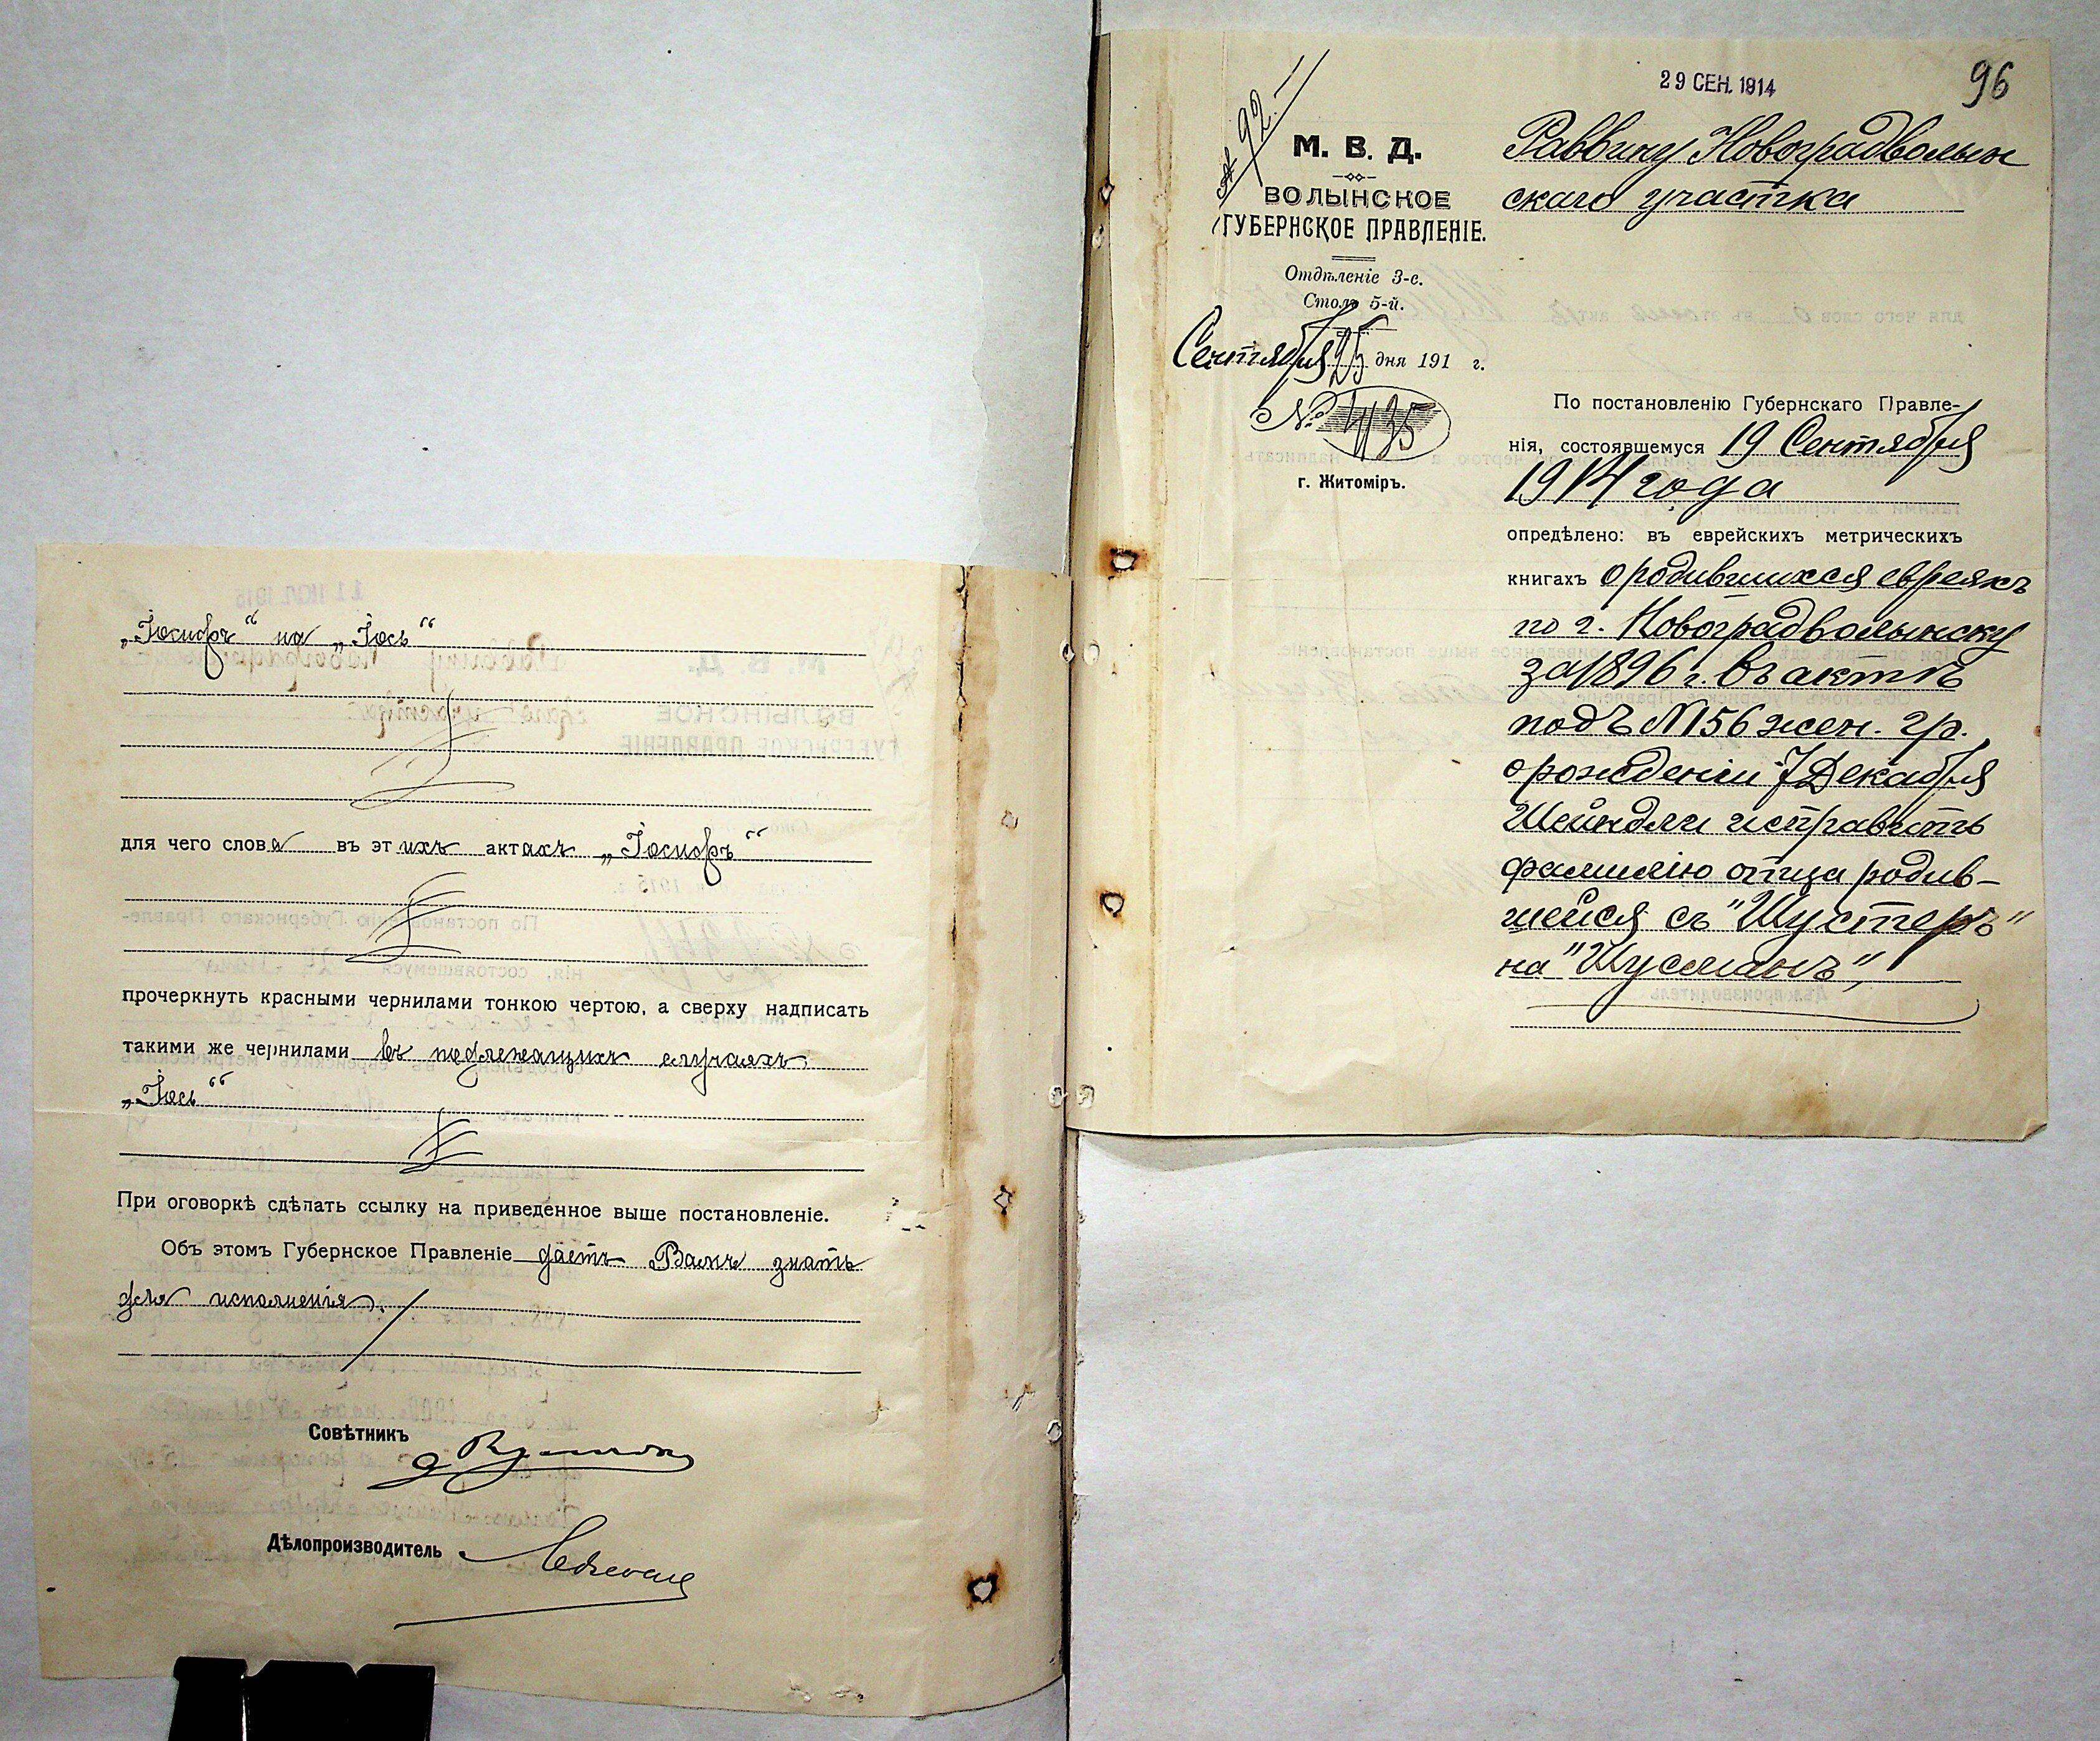 „Іосифъ“ на „Іось“
для чего слова въ этихъ актахъ „Іосифъ“
прочеркнуть красными чернилами тонкою чертою, а сверху надписать
такими же чернилами въ подлежащихъ случаяхъ
„Іось“
При оговоркѣ сдѣлать ссылку на приведенное выше постановленіе.
Объ этомъ Губернское Правленіе даетъ Вамъ знать
для исполненія.
Совѣтникъ
Дѣлопроизводитель
29 СЕН. 1914
96
№ 92.
М. В. Д.
ВОЛЫНСКОЕ
ГУБЕРНСКОЕ ПРАВЛЕНІЕ.
Отдѣленіе 3-е.
Столъ 5-й.
Сентября 25 дня 191 г.
№ 4135
г. Житоміръ.
Раввину Новоградволын
скаго участка
По постановленію Губернскаго Правле-
нія, состоявшемуся 19 Сентября
1914 года
опредѣлено: въ еврейскихъ метрическихъ
книгахъ о родившихся евреяхъ
по г. Новоградволынску
за 1896 г. въ актѣ
подъ N 156 жен. гр.
о рожденіи 7 Декабря
Шейндли исправить
фамилію отца родив-
шейся съ "Шустеръ"
на "Шусманъ",